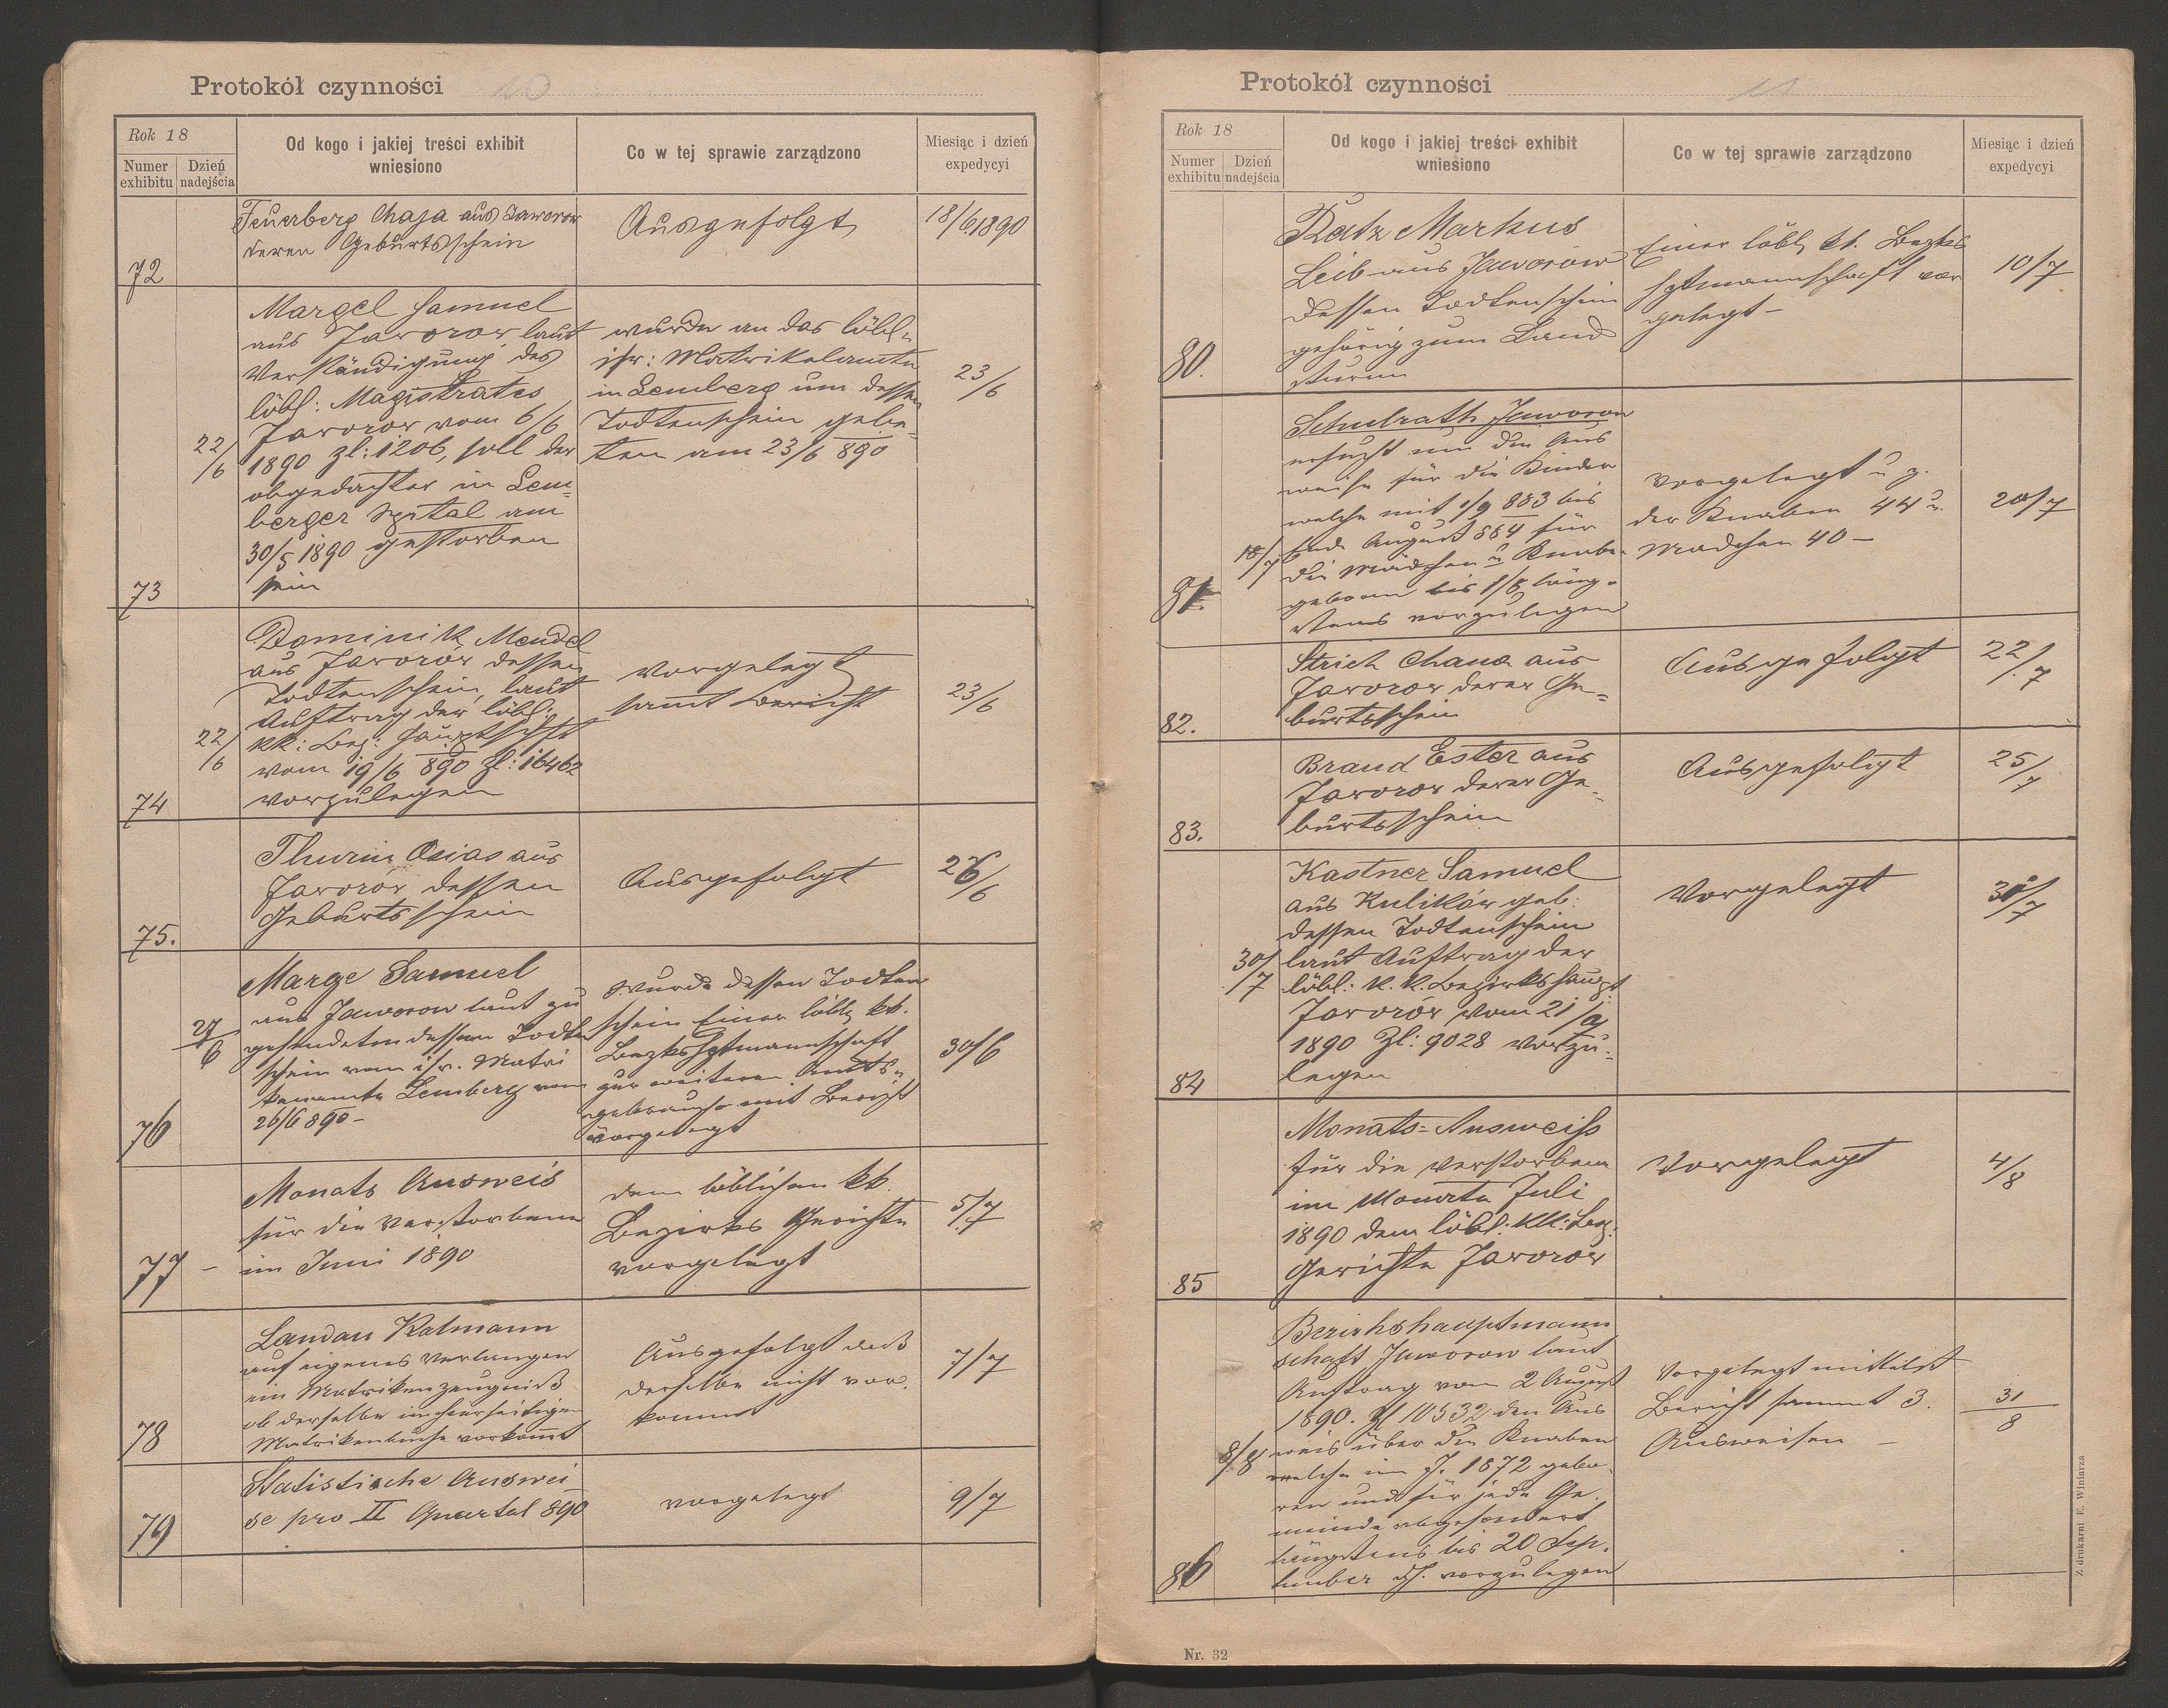 Protokół czynności 10
Rok 18
Numer exhibitu
Dzień nadejścia
Od kogo i jakiej treści exhibit
wniesiono
Co w tej sprawie zarządzono
Miesiąc i dzień
expedycyi
72
Feuerberg Chaja aus Jaworow
deren Geburtsschein
Ausgefolgt
18/6 1890
73
22/6
Margel Samuel
aus Jaworow laut
Verständigung des
löbl: Magistrates
Jaworow vom 6/6
1890 Zl: 1206, soll der
obgedachter in Lem-
berger Spital am
30/5 1890 gestorben
sein
wurde an das löbl.
isr: Matrikelamte
in Lemberg um dessen
Todtenschein gebe-
ten am 23/6 890
23/6
74
22/6
Dominik Mendel
aus Jaworów dessen
Todtenschein, laut
Auftrag der löbl:
kk: Bez: Hauptschft
vom 19/6 890 Zl: 16462
vorzulegen
vorgelegt
sammt Bericht
23/6
75.
Thurin Osias aus
Jaworów dessen
Geburtsschein
Ausgefolgt
26/6
76
27/6
Marge Samuel
aus Jaworow laut zu
gesendeten dessen Todten
schein vom isr. Matri
kenamte Lemberg vom
26/6 890 –
Wurde dessen Todten
schein Einer löbl kk.
Bezkshptmannschaft
zur weiteren Amts-
gebrauche mit Bericht
vorgelegt
30/6
77 –
Monats Ausweis
für die Verstorbene
im Juni 1890
dem löblichen kk.
Bezirks Gerichte
vorgelegt
5/7
78
Landau Kalmann
auf eigenes Verlangen
ein Matrikenzeugniß
ob derselbe im hierseitigen
Matrikenbuche vorkommt
Ausgefolgt daß
derselbe nicht vor-
kommt
7/7
79
Statistische Auswei
se pro II Quartal 890
vorgelegt
9/7
Protokół czynności 11
Rok 18
Numer exhibitu
Dzień nadejścia
Od kogo i jakiej treści exhibit
wniesiono
Co w tej sprawie zarządzono
Miesiąc i dzień
expedycyi
80.
Katz Markus
Leib aus Jaworow
dessen Todtenschein
gehörig zum Land
sturm
Einer löbl kk. Bezks
hptmannschaft vor
gelegt –
10/7
81.
18/7
Schulrath Jaworow
ersucht um die Aus
weise für die Kinder
welche mit 1/9 883 bis
Ende August 884 für
die Mädchen u Knaben
geboren bis 1/8 läng-
stens vorzulegen
vorgelegt u z.
der Knaben 44 u.
Mädchen 40 –
20/7
82.
Strich Chana aus
Jaworow derer Ge-
burtsschein
Ausgefolgt
22/7
83.
Brand Ester aus
Jaworow derer Ge-
burtsschein
Ausgefolgt
25/7
84
30/7
Kastner Samuel
aus Kulików geb:
dessen Todtenschein
laut Auftrag der
löbl: k. k. Bezirkshaupt
Jaworów vom 21/7
1890 Zl: 9028 vorzu-
legen
Vorgelegt
85
Monats-Ausweiss
für die Verstorbene
im Monate Juli
1890 dem löbl: kk: Bez:
Gerichte Jaworów
Vorgelegt
4/8
86
8/8
Bezirkshauptmann
schaft Jaworow laut
Auftrag vom 2 August
1890. Zl 10532 den Aus
weis über die Knaben
welche im J. 1872 gebo-
ren und für jede Ge-
meinde abgesondert
längstens bis 20 Sep.
tember vorzulegen
Vorgelegt mittelst
Bericht sammt 3.
Ausweisen –
31/8
Z drukarni E. Winiarza
Nr. 32